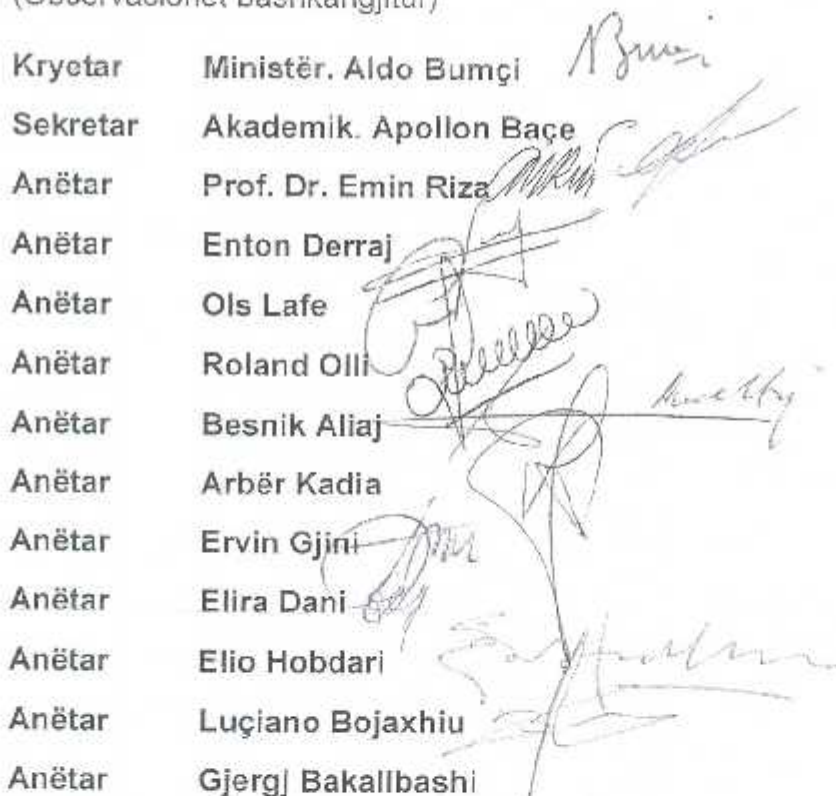 (Observacionet bashkangjitur)
Kryetar Ministër. Aldo Bumçi
Sekretar Akademik. Apollon Baçe
Anëtar Prof. Dr. Emin Riza
Anëtar Enton Derraj
Anëtar Ols Lafe
Anëtar Roland Olli
Anëtar Besnik Aliaj
Anëtar Arbër Kadia
Anëtar Ervin Gjini
Anëtar Elira Dani
Anëtar Elio Hobdari
Anëtar Luçiano Bojaxhiu
Anëtar Gjergj Bakallbashi